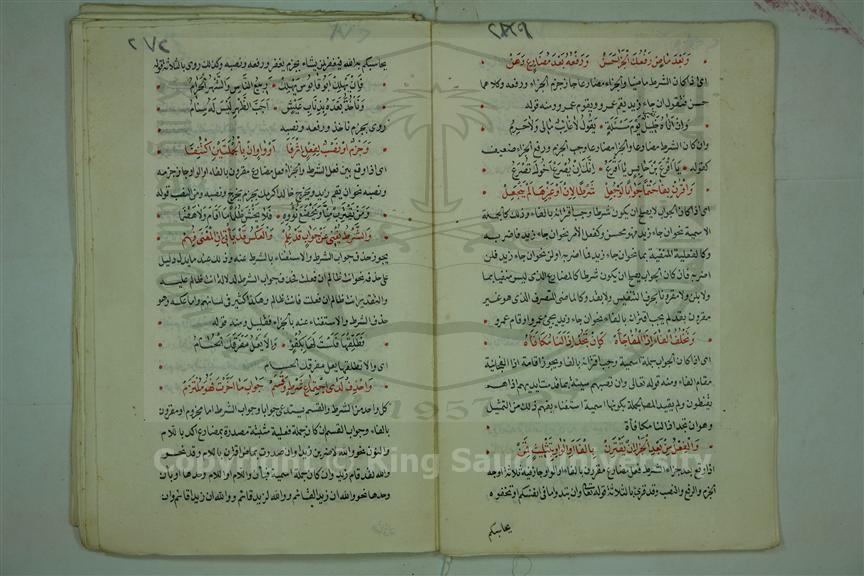 وبعد ماض رفعك الجزا حسن * ورفعه بعد مضارع وهن
اى اذا كان الشرط ماضيا والجزاء مضارعا جاز جزم الجزاء ورفعه وكلاهما
حسن فتقول ان جاء زيد يقم عمرو ويقوم عمرو ومنه قوله
وان اتاه خليل يوم مسئلة * يقول لا غائب مالى ولا حرم
وان كان الشرط مضارعا والجزاء مضارعا وجب الجزم ورفع الجزاء ضعيف
كقوله * يا اقرع بن حابس يا اقرع * انك ان يصرع اخوك تصرع
واقرن بفا حتما جوابا لو جعل * شرطا لان او غيرها لم ينجعل
اى اذا كان الجواب لا يصلح ان يكون شرطا وجب اقترانه بالفاء وذلك كالجملة
الاسمية نحو ان جاء زيد فهو محسن وكفعل الامر نحو ان جاء زيد فاضربه
وكالفعلية المنفية بما نحو ان جاء زيد فما اضربه او لن نحو ان جاء زيد فلن
اضربه فان كان الجواب يصلح ان يكون شرطا كالمضارع الذى ليس منفيا بما
ولا بلن ولا مقرونا بحرف التنفيس ولا بقد وكالماضى المتصرف الذى هو غير
مقرون بقد لم يجب اقترانه بالفاء نحو ان جاء زيد يجئ عمرو او قام عمرو
وتخلف الفاء اذا المفاجأة * كان تجد اذا لنا مكافاة
اى اذا كان الجواب جملة اسمية وجب اقترانه بالفاء ويجوز اقامة اذا الفجائية
مقام الفاء ومنه قوله تعالى وان تصبهم سيئة بما قدمت ايديهم اذا هم
يقنطون ولم يقيد المص الجملة بكونها اسمية استغناء بفهم ذلك من التمثيل
وهو ان تجد اذا لنا مكافاة
والفعل من بعد الجزا ان يقترن * بالفا او الواو بتثليث قمن
اذا وقع بعد جزاء الشرط فعل مضارع مقرون بالفاء او الواو جاز فيه ثلاثة اوجه
الجزم والرفع والنصب وقد قرئ بالثلاثة قوله تعالى وان تبدوا ما فى انفسكم او تخفوه
يحاسبكم
٢٧٢
يحاسبكم به الله فيغفر لمن يشاء بجزم يغفر ورفعه ونصبه وكذلك روى بالثلاثة قوله
فان يهلك ابو قابوس يهلك * ربيع الناس والشهر الحرام
وناخذ بعده بذناب عيش * اجب الظهر ليس له سنام
روى بجزم ناخذ ورفعه ونصبه
وجزم او نصب لفعل اثر فا * او واو ان بالجملتين اكتنفا
اى اذا وقع بين فعل الشرط والجزاء فعل مضارع مقرون بالفاء او الواو جاز جزمه
ونصبه نحو ان يقم زيد ويخرج خالد اكرمك بجزم يخرج ونصبه ومن النصب قوله
ومن يقترب منا ويخضع نؤوه * ولا يخش ظلما ما اقام ولا هضما
والشرط يغنى عن جواب قد علم * والعكس قد ياتى ان المعنى فهم
يجوز حذف جواب الشرط والاستغناء بالشرط عنه وذلك عند ما يدل دليل
على حذفه نحو انت ظالم ان فعلت فحذف جواب الشرط لدلالة انت ظالم عليه
والتقدير انت ظالم ان فعلت فانت ظالم وهكذا كثير فى لسانهم واما عكسه وهو
حذف الشرط والاستغناء عنه بالجزاء فقليل ومنه قوله
فطلقها فلست لها بكفؤ * والا يعل مفرقك الحسام
اى والا تطلقها يعل مفرقك الحسام
واحذف لدى اجتماع شرط وقسم * جواب ما اخرت فهو ملتزم
كل واحد من الشرط والقسم يستدعى جوابا وجواب الشرط اما مجزوم او مقرون
بالفاء وجواب القسم ان كان جملة فعلية مثبتة مصدرة بمضارع اكد باللام
والنون نحو والله لاضربن زيدا وان صدرت بماض اقترن باللام وقد نحو
والله لقد قام زيد وان كان جملة اسمية فبان واللام او اللام وحدها او بان
وحدها نحو والله ان زيدا لقائم ووالله لزيد قائم ووالله ان زيدا قائم وان
Copyright © King Saud University
1957